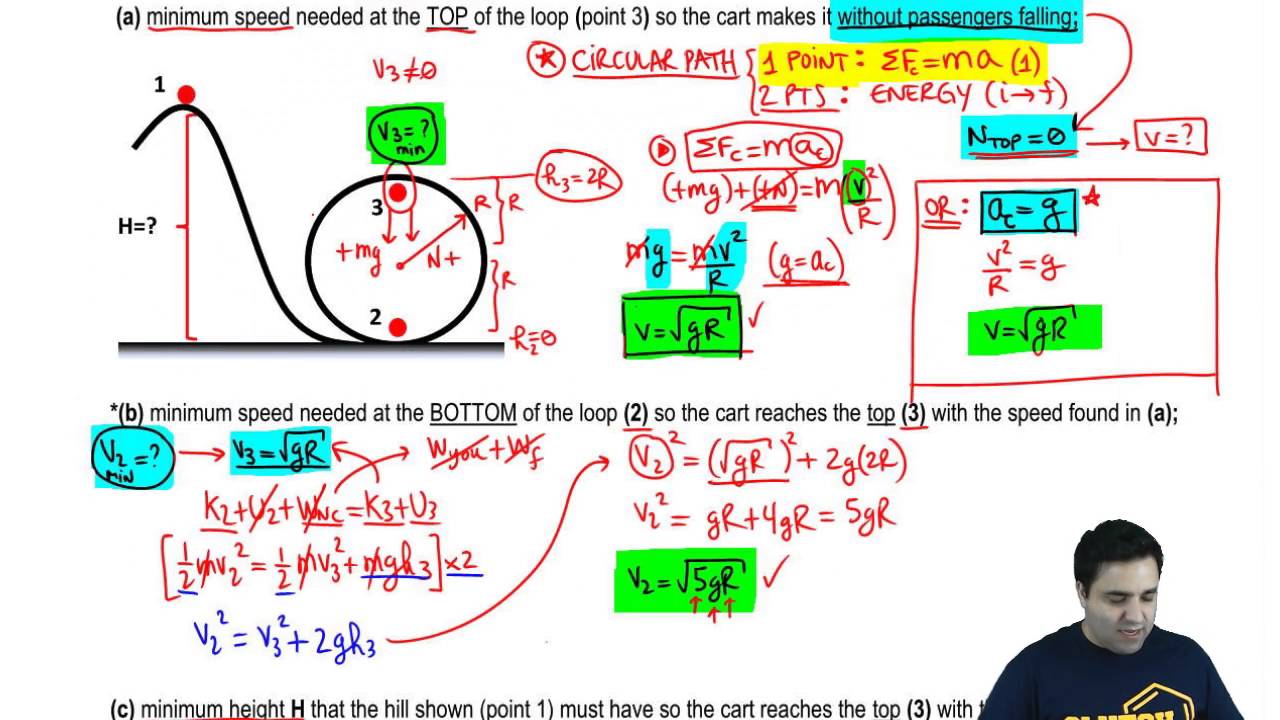 (a) minimum speed needed at the TOP of the loop (point 3) so the cart makes it without passengers falling;
* CIRCULAR PATH
1 POINT: ΣFc=ma (1)
2 PTS: ENERGY (i→f)
V3≠0
V3=?
min
NTOP=0 → V=?
1
3
2
H=?
h3=2R
R
R
R
+mg
N+
h2=0
ΣFc=mac
(+mg)+(+N)=m(v²/R)
mg=mv²/R (g=ac)
V=√gR ✓
OR: ac=g *
v²/R=g
V=√gR
*(b) minimum speed needed at the BOTTOM of the loop (2) so the cart reaches the top (3) with the speed found in (a);
V2=? → V3=√gR
MIN
Wyou+Wf
K2+U2+WNC=K3+U3
[½mv2²=½mv3²+mgh3]×2
V2²=V3²+2gh3
V2²=(√gR)²+2g(2R)
V2²=gR+4gR=5gR
V2=√5gR ✓
(c) minimum height H that the hill shown (point 1) must have so the cart reaches the top (3) with